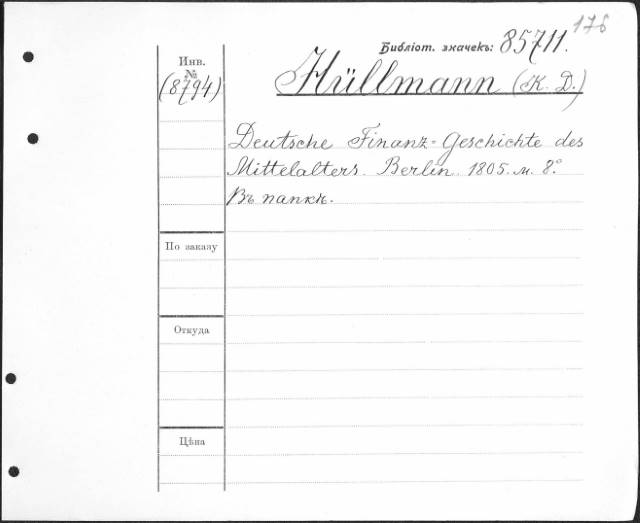 176
Библіот. значекъ: 85711.
Инв.
№
(8794)
Hüllmann (K. D.)
Deutsche Finanz-Geschichte des
Mittelalters. Berlin. 1805. м. 8°.
Въ папкѣ.
По заказу
Откуда
Цѣна